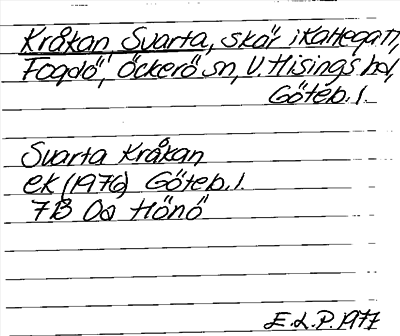 Kråkan, Svarta, skär i Kattegatt,
Fogdö, Öckerö sn, V. Hisings hd,
Göteb. l.
Svarta Kråkan
ek (1976) Göteb. l.
7B 0a Hönö
E.L.P. 1977